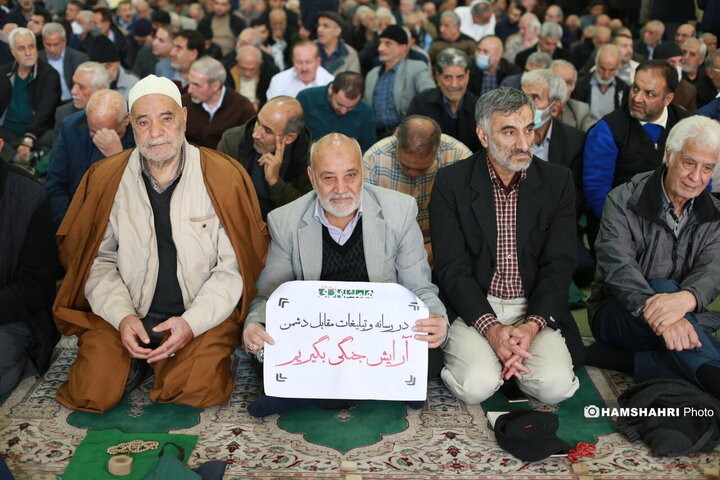 در رسانه و تبلیغات مقابل دشمن
آرایش جنگی بگیریم
HAMSHAHRI Photo